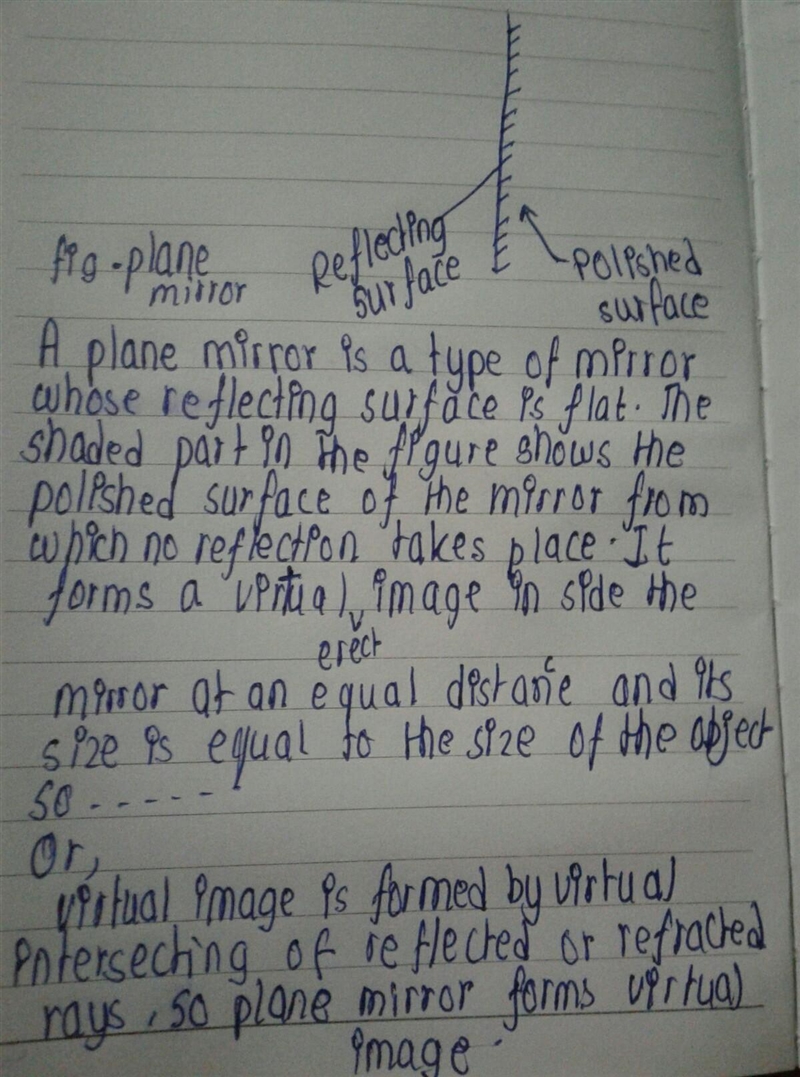 fig-plane
mirror
Reflecting
surface
polished
surface
A plane mirror is a type of mirror
whose reflecting surface is flat. The
shaded part in the figure shows the
polished surface of the mirror from
which no reflection takes place. It
forms a virtual, image in side the
erect
mirror at an equal distance and its
size is equal to the size of the object
so -----
Or,
virtual image is formed by virtual
intersecting of reflected or refracted
rays, so plane mirror forms virtual
image.